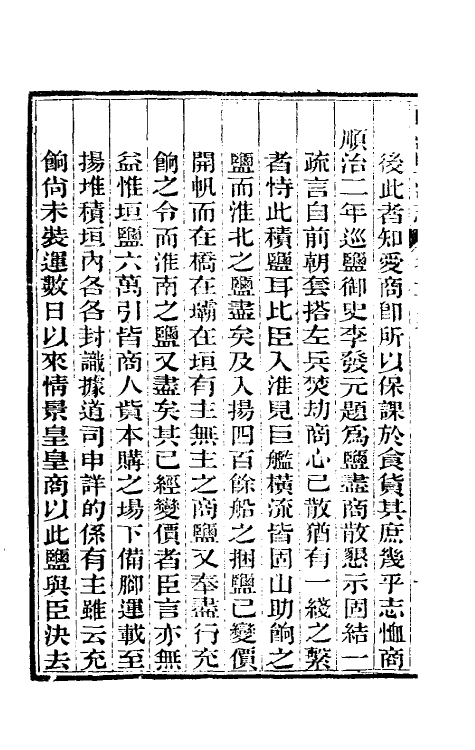 後此者知愛商卽所以保課於食貨其庶幾乎志恤商
順治二年巡鹽御史李發元題爲鹽盡商散懇示固結一
疏言自前朝套搭左兵焚劫商心已散猶有一綫之繫
者恃此積鹽耳比臣入淮見巨艦橫流皆固山助餉之
鹽而淮北之鹽盡矣及入揚四百餘船之捆鹽已變價
開帆而在橋在壩在垣有主無主之商鹽又奉盡行充
餉之令而淮南之鹽又盡矣其已經變價者臣言亦無
益惟垣鹽六萬引皆商人貲本購之場下備腳運載至
揚堆積垣內各各封識據道司申詳的係有主雖云充
餉尙未裝運數日以來情景皇皇商以此鹽與臣決去